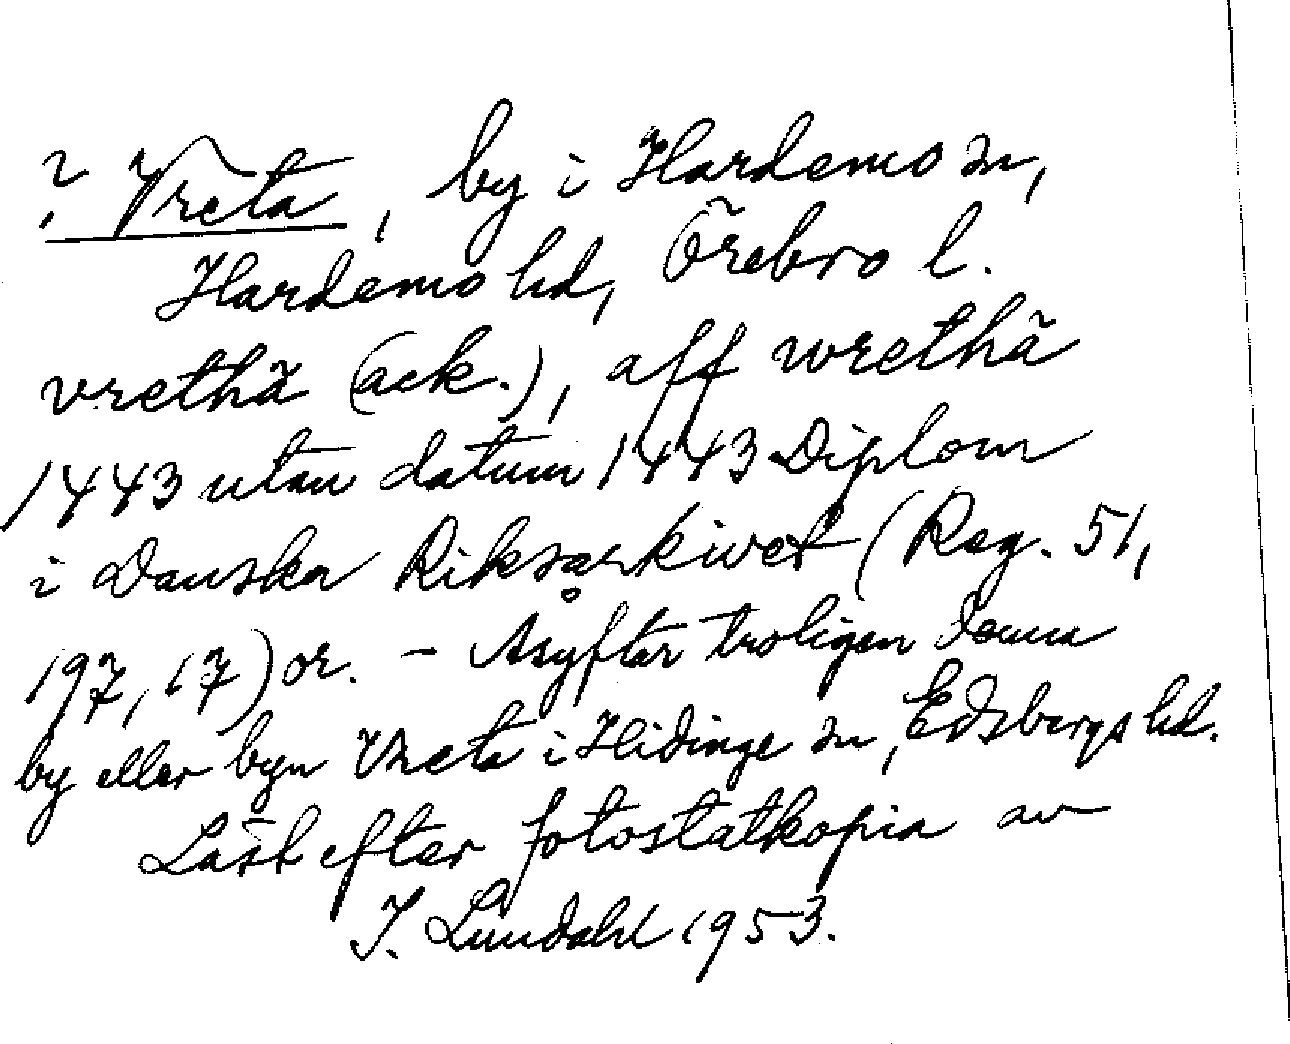 ? Vreta, by i Hardemo sn,
Hardemo hd, Örebro l.
vrethä (ack.), aff wrethä
1443 utan datum 1443 Diplom
i Danska Riksarkivet (Reg. 51,
197, 17) or. - Åsyftar troligen denna
by eller byn Vreta i Hidinge sn, Edsbergs hd.
Läst efter fotostatkopia av
I. Lundahl 1953.